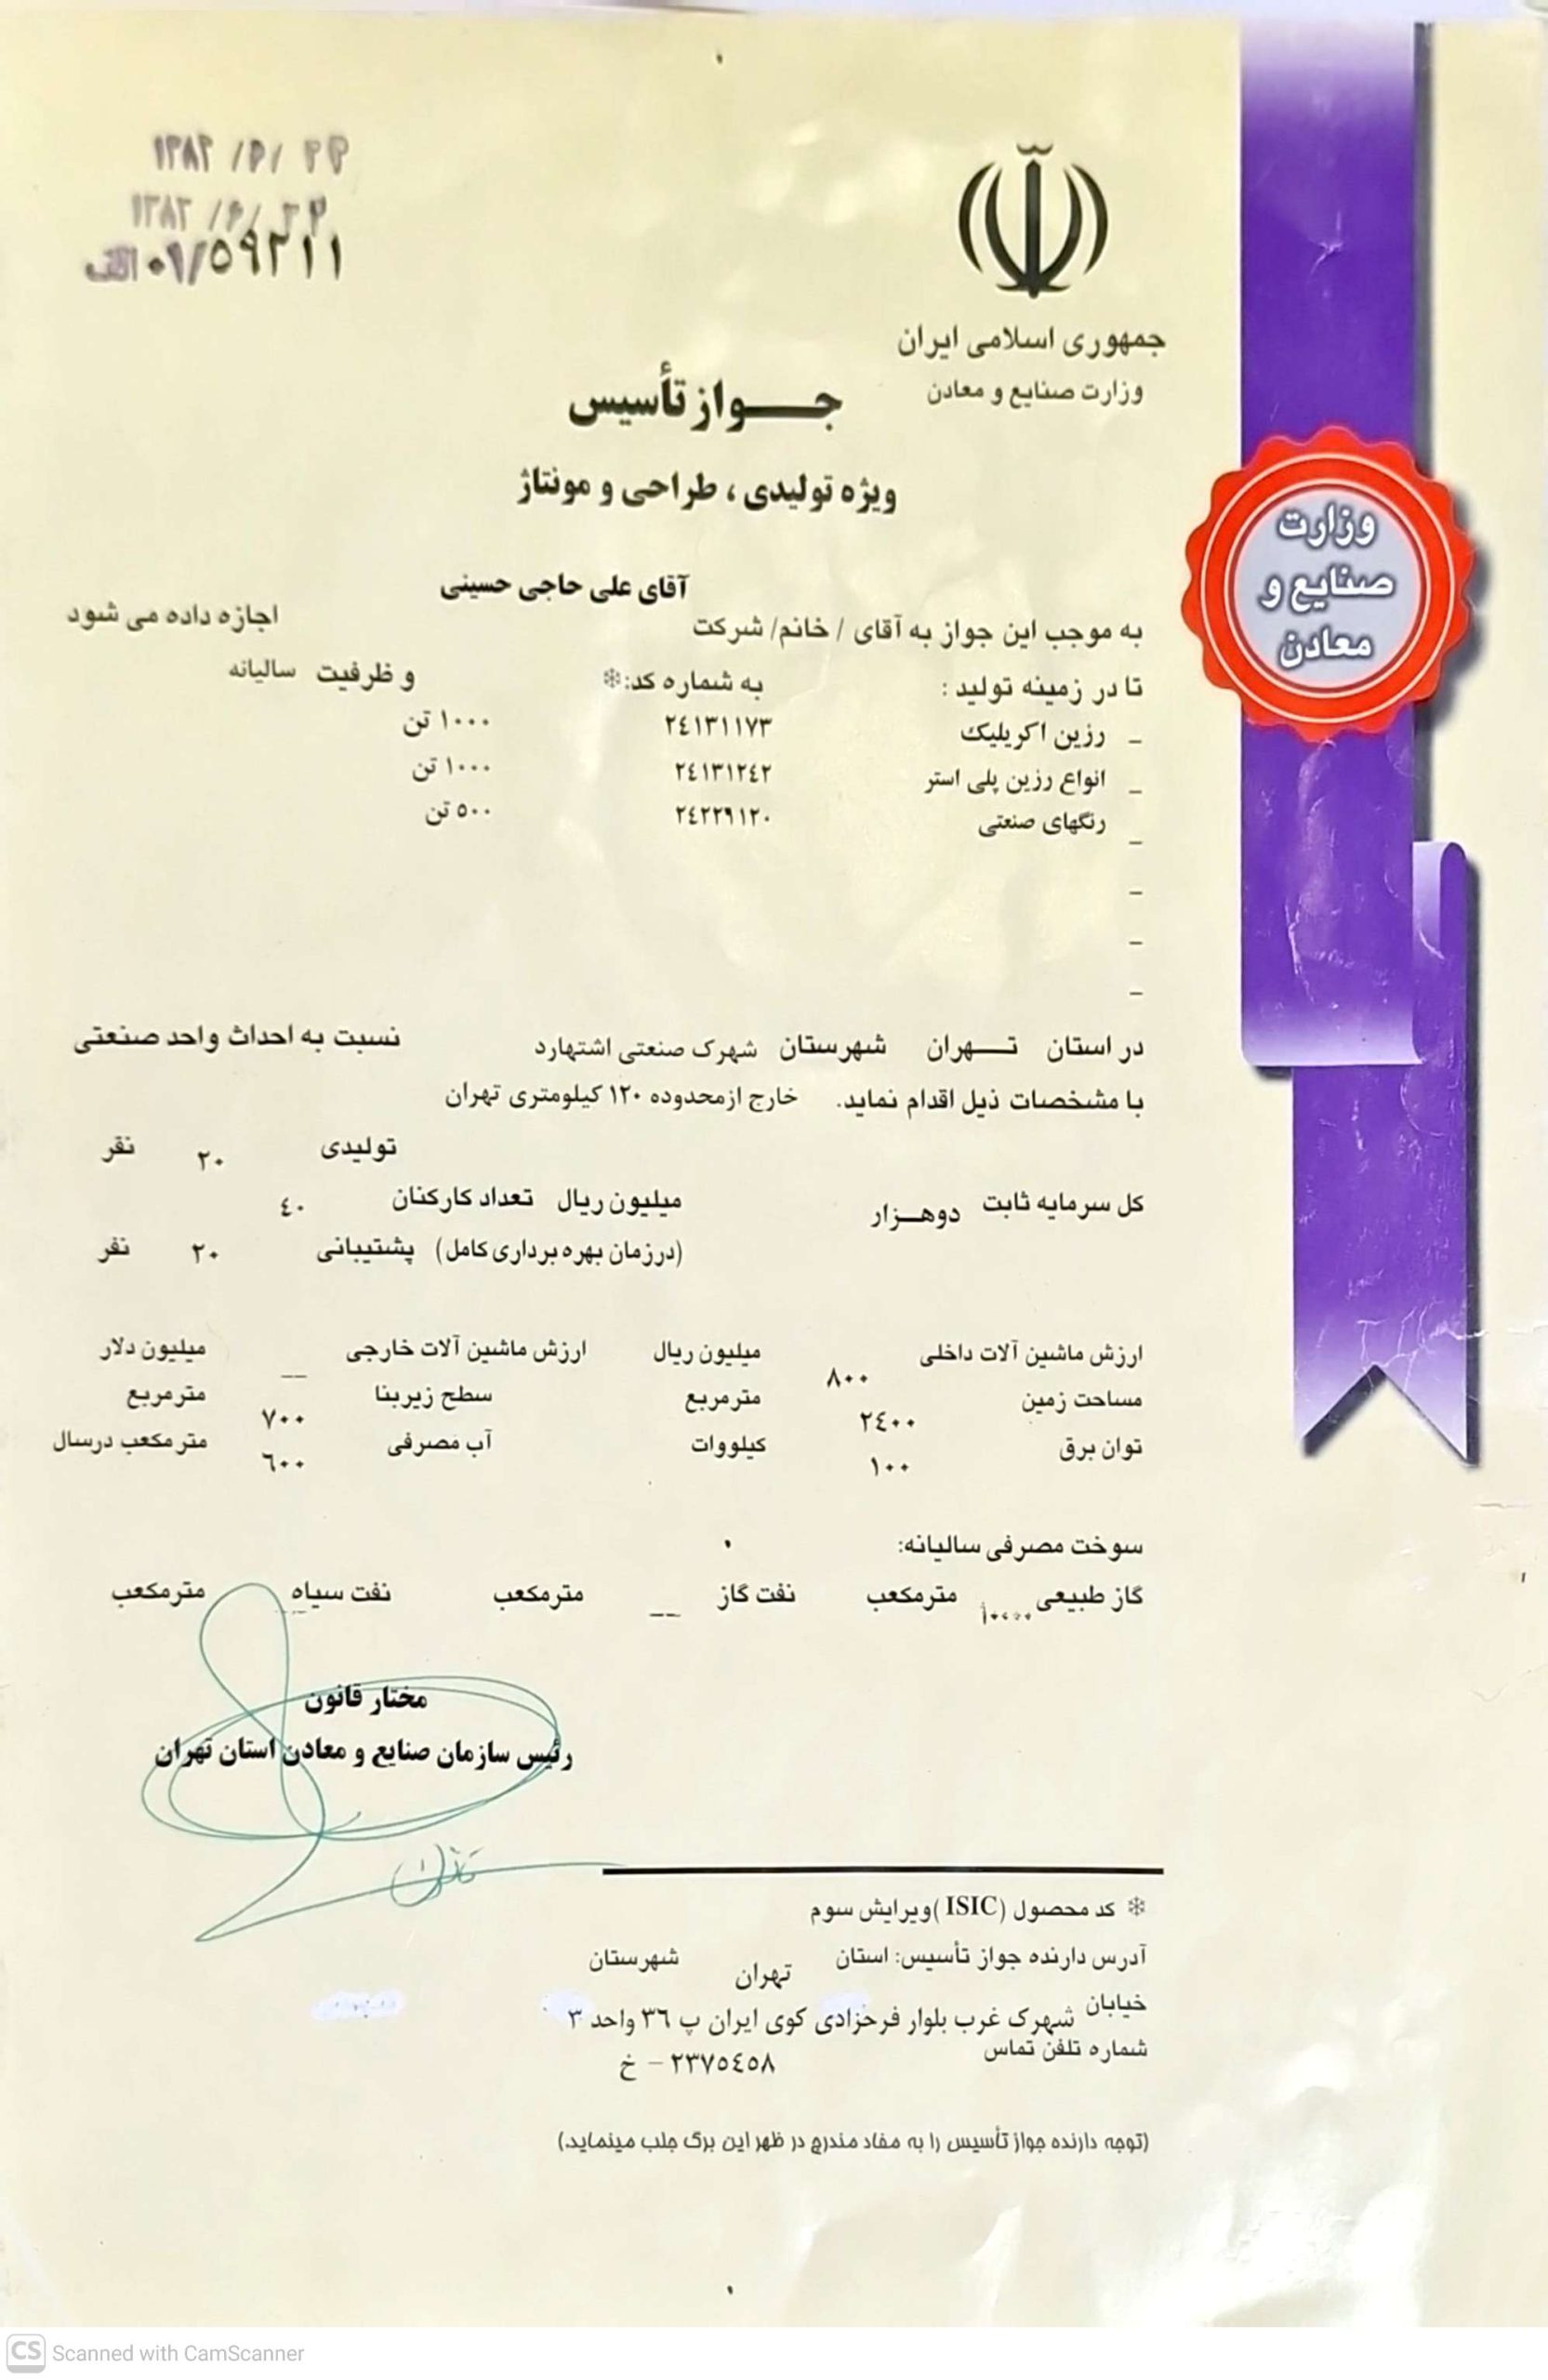 ۱۳۸۲ /۶/ ۲۲
۱۳۸۲ /۶/ ۲۲
۰۱/۵۹۲۱۱ الف
جمهوری اسلامی ایران
وزارت صنایع و معادن
جـــواز تأسیس
ویژه تولیدی ، طراحی و مونتاژ
وزارت
صنایع و
معادن
آقای علی حاجی حسینی
به موجب این جواز به آقای / خانم/ شرکت اجازه داده می شود
تا در زمینه تولید : به شماره کد:❄ و ظرفیت سالیانه
– رزین اکریلیک ۲٤۱۳۱۱۷۳ ۱۰۰۰ تن
– انواع رزین پلی استر ۲٤۱۳۱۲٤۲ ۱۰۰۰ تن
– رنگهای صنعتی ۲٤۲۲۹۱۲۰ ۵۰۰ تن
–
–
–
در استان تـــهران شهرستان شهرک صنعتی اشتهارد نسبت به احداث واحد صنعتی
با مشخصات ذیل اقدام نماید. خارج ازمحدوده ۱۲۰ کیلومتری تهران
تولیدی ۲۰ نفر
کل سرمایه ثابت دوهــزار میلیون ریال تعداد کارکنان ٤۰
(درزمان بهره برداری کامل) پشتیبانی ۲۰ نفر
ارزش ماشین آلات داخلی ۸۰۰ میلیون ریال ارزش ماشین آلات خارجی __ میلیون دلار
مساحت زمین ۲٤۰۰ مترمربع سطح زیربنا ۷۰۰ مترمربع
توان برق ۱۰۰ کیلووات آب مصرفی ٦۰۰ متر مکعب درسال
سوخت مصرفی سالیانه:
گاز طبیعی مترمکعب نفت گاز __ مترمکعب نفت سیاه __ مترمکعب
مختار قانون
رئیس سازمان صنایع و معادن استان تهران
❄ کد محصول (ISIC)ویرایش سوم
آدرس دارنده جواز تأسیس: استان تهران شهرستان
خیابان شهرک غرب بلوار فرحزادی کوی ایران پ ۳٦ واحد ۳
شماره تلفن تماس ۲۳۷۵٤۵۸ – خ
(توجه دارنده جواز تأسیس را به مفاد مندرج در ظهر این برگ جلب مینماید.)
CS Scanned with CamScanner